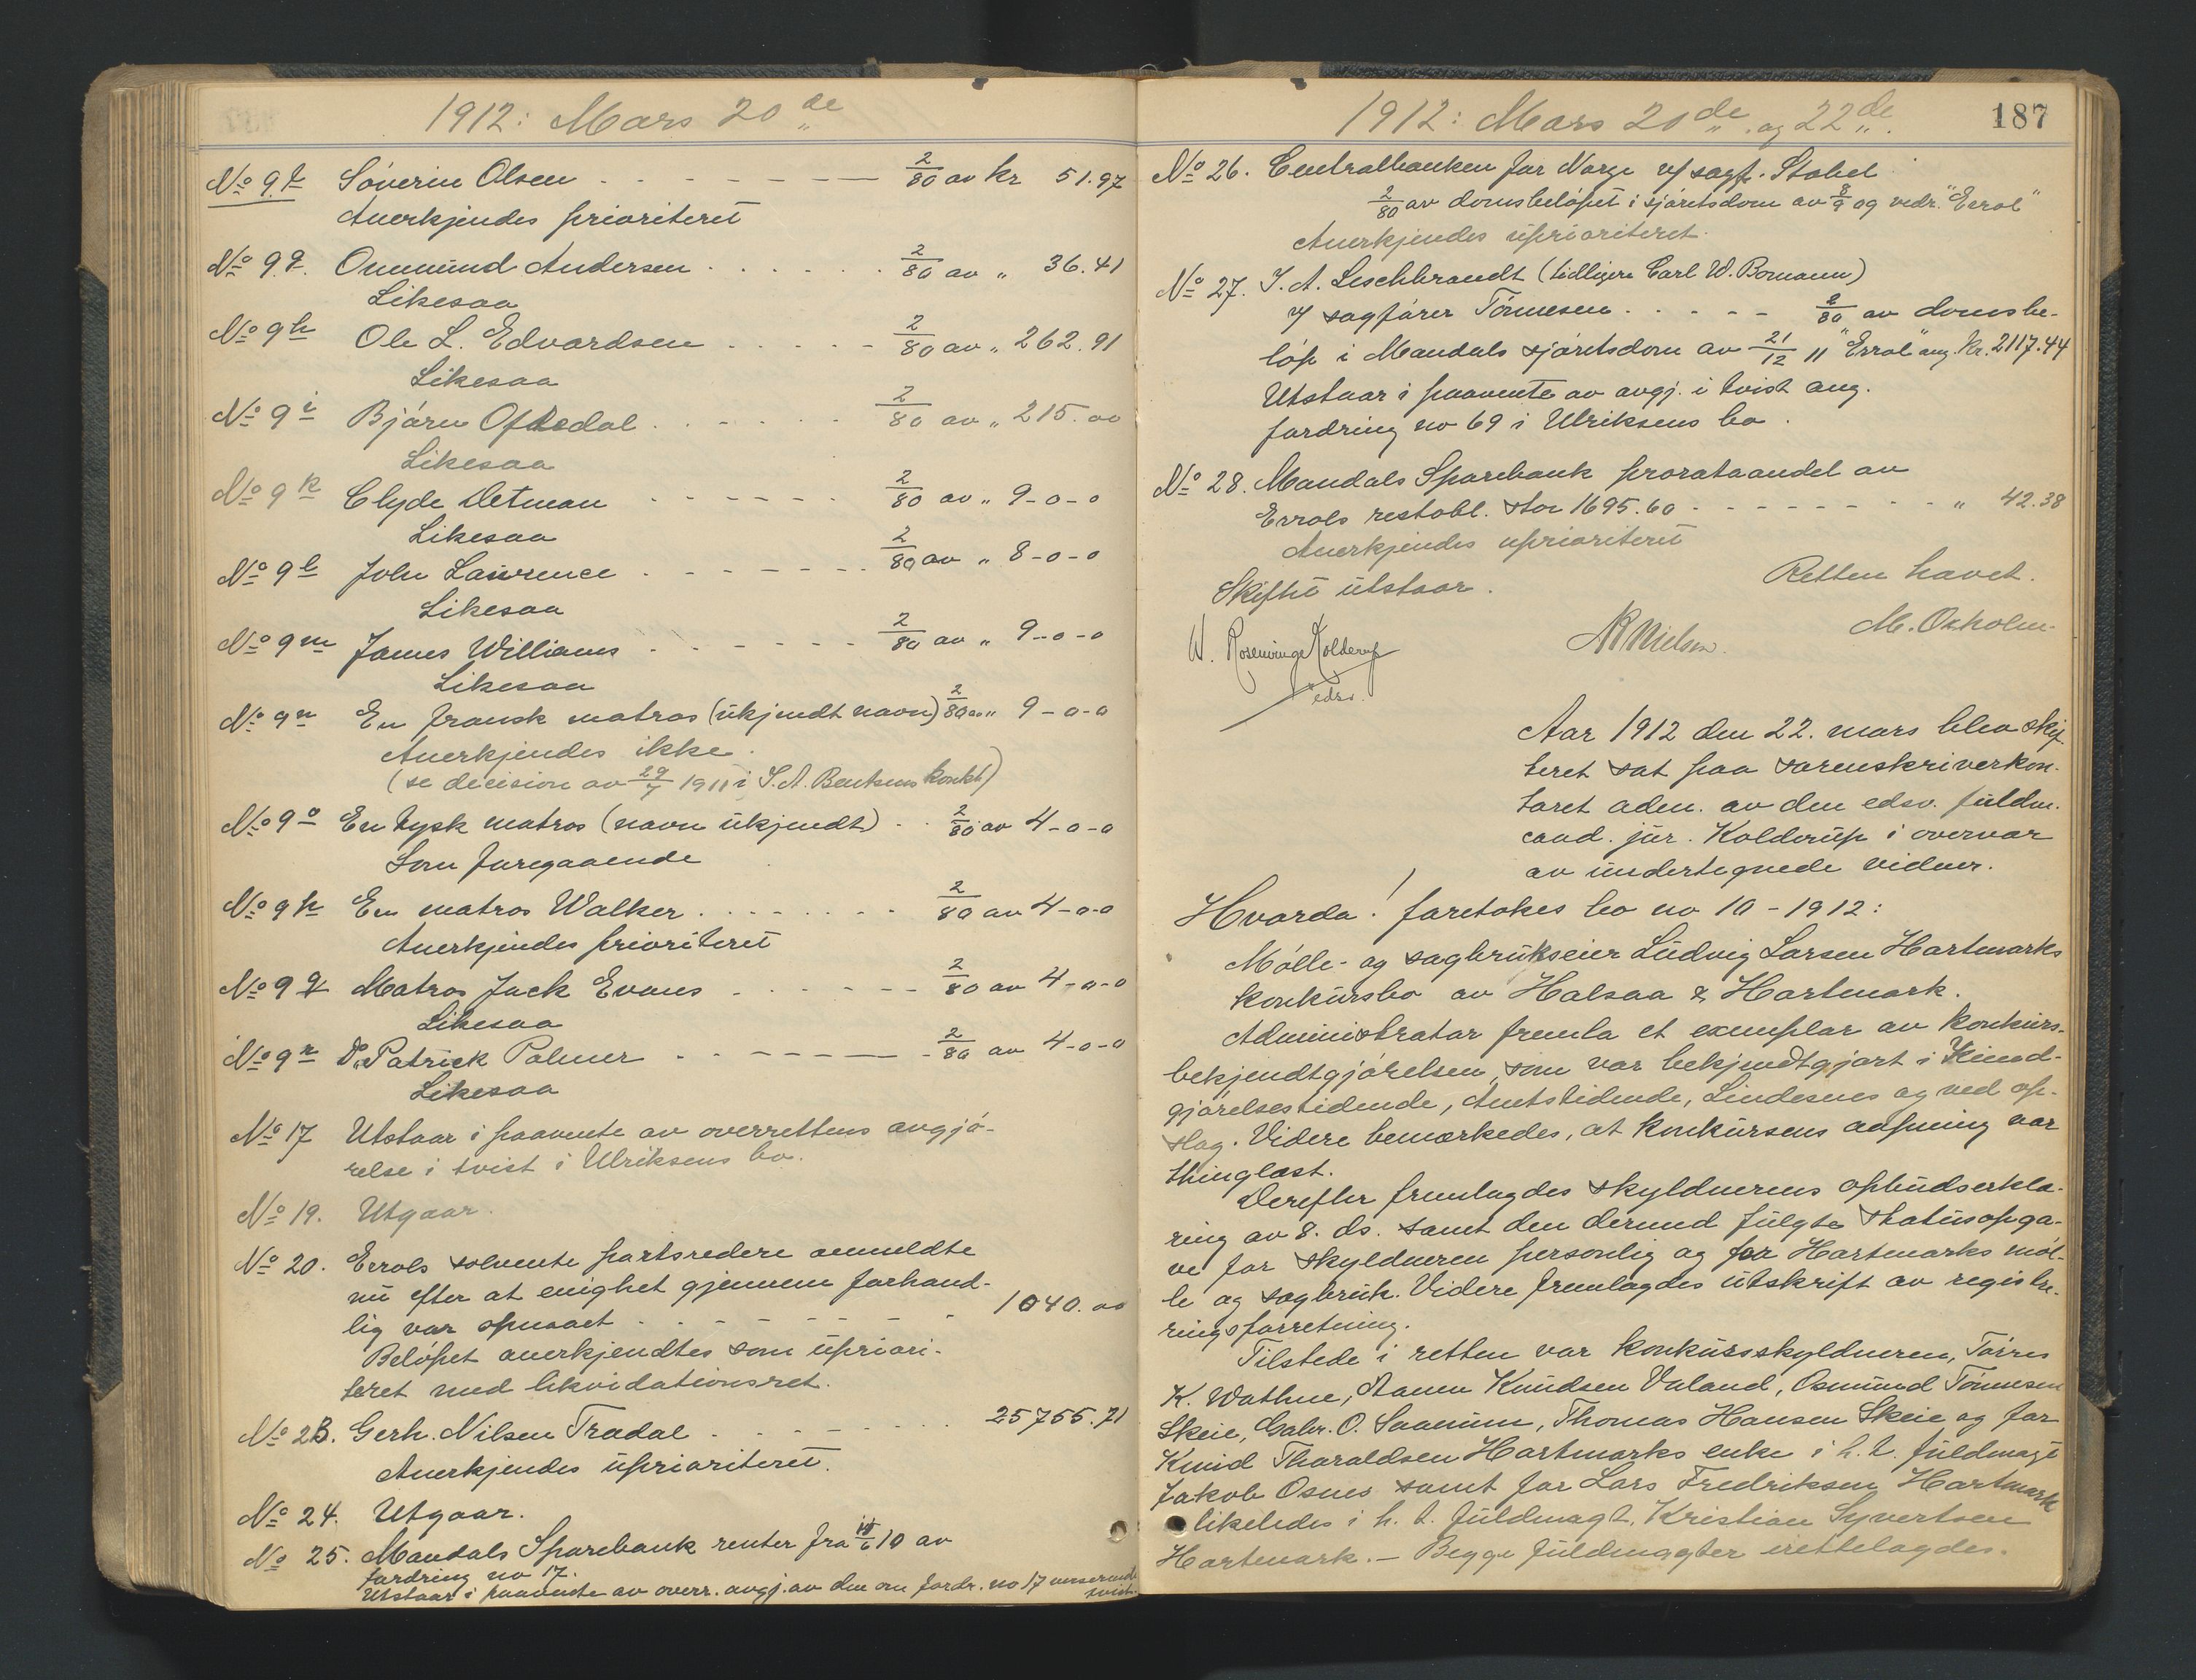 1912: Mars 20de
No 9f Sóverin Olsen - - - - - 2/80 av kr 51.97
Anerkjendes prioriteret
No 9g. Ommund Andersen . . . . . 2/80 av „ 36.41
Likesaa
No 9h Ole L. Edvardsen . . . . - 2/80 av „ 262.91
Likesaa
No 9i Bjórn Oftedal . . . . . 2/80 av „ 215.00
Likesaa
No 9k Clyde Detman - - - - - 2/80 av „ 9-0-0
Likesaa
No 9l John Lawrence . - - - - - 2/80 av „ 8-0-0
Likesaa
No 9m James Williams - - - - - 2/80 av „ 9-0-0
Likesaa
No 9n En fransk matros (ukjendt navn) 2/80 av „ 9-0-0
Anerkjendes ikke.
(se decision av 29/7 1911 i S. A. Bentsens konkb)
No 9o En tysk matros (navn ukjendt) . . 2/80 av 4-0-0
Som foregaaende
No 9p En matros Walker . . . . . 2/80 av 4-0-0
Anerkjendes prioriteret
No 9q Matros Jack Evans - - - - - 2/80 av 4-0-0
Likesaa
No 9r Do Patrick Palmer - - - - - 2/80 av 4-0-0
Likesaa
No 17 Utstaar i paavente av overrettens avgjó-
relse i tvist i Ulriksens bo.
No 19. Utgaar.
No 20. Errols solvente partsredere anmeldte
nu efter at enighet gjennem forhand-
lig var opnaaet . . - - - - 1040.00
Belópet anerkjendtes som upriori-
teret med likvidationsret.
No 23. Gerh. Nilsen Tradal . . . - . . 25755.71
Anerkjendes uprioriteret.
No 24. Utgaar.
No 25. Mandals Sparebank renter fra 10 av
fordring no 17.
Utstaar i paavente av overr. avgj. av den om fordr. no 17 verserende
tvist.
1912: Mars 20de og 22de.
187
No 26. Centralbanken for Norge v/ sagf. Stabel
2/80 av domsbelópet i sjóretsdom av 8/9 09 vedr. "Errol"
Anerkjendes uprioriteret.
No 27. I. A. Leschbrandt (tidligere Carl W. Bomann)
v/ sagfórer Tónnesen . . . - - 2/80 av domsbe-
lóp i Mandals sjóretsdom av 21/12 11 "Errol" ang. kr. 2117.44
Utstaar i paavente av avgj. i tvist ang.
fordring no 69 i Ulriksens bo.
No 28. Mandals Sparebank prorataandel av
Errols restobl. stor 1695.60 - - - - - - „ 42.38
Anerkjendes uprioriteret
Skiftet utstaar.
Retten hævet.
W. Rosenvinge Kolderup
edsv.
Nielsen.
M. Oxholm.
Aar 1912 den 22. mars blev skif-
teret sat paa sorenskriverkon-
toret adm. av den edsv. fuldm.
cand. jur. Kolderup i overvær
av undertegnede vidner.
Hvorda! foretokes bo no 10 - 1912:
Mólle- og sagbrukseier Ludvig Larsen Hartmarks
konkursbo av Halsaa & Hartmark.
Administrator fremla et exemplar av konkurs-
bekjendtgjórelsen, som var bekjendtgjort i Kund-
gjórelsestidende, Amtstidende, Lindesnes og ved op-
slag. Videre bemerkedes, at konkursens aapning var
thinglæst.
Derefter fremlagdes skyldnerens opbudserklæ-
ring av 8. ds. samt den dermed fulgte statusopga-
ve for skyldneren personlig og for Hartmarks mól-
le og sagbruk. Videre fremlagdes utskrift av registre-
ringsforretning.
Tilstede i retten var konkursskyldneren, Tórres
K. Wathne, Aanen Knudsen Valand, Osmund Tónnesen
Skeie, Gabr. O. Saanum, Thomas Hansen Skeie og for
Knud Tharaldsen Hartmarks enke i h. t. fuldmagt
Jakob Osnes samt for Lars Fredriksen Hartmark
likeledes i h. t. fuldmagt, Kristian Syvertsen
Hartmark. - Begge fuldmagter irettelagdes.